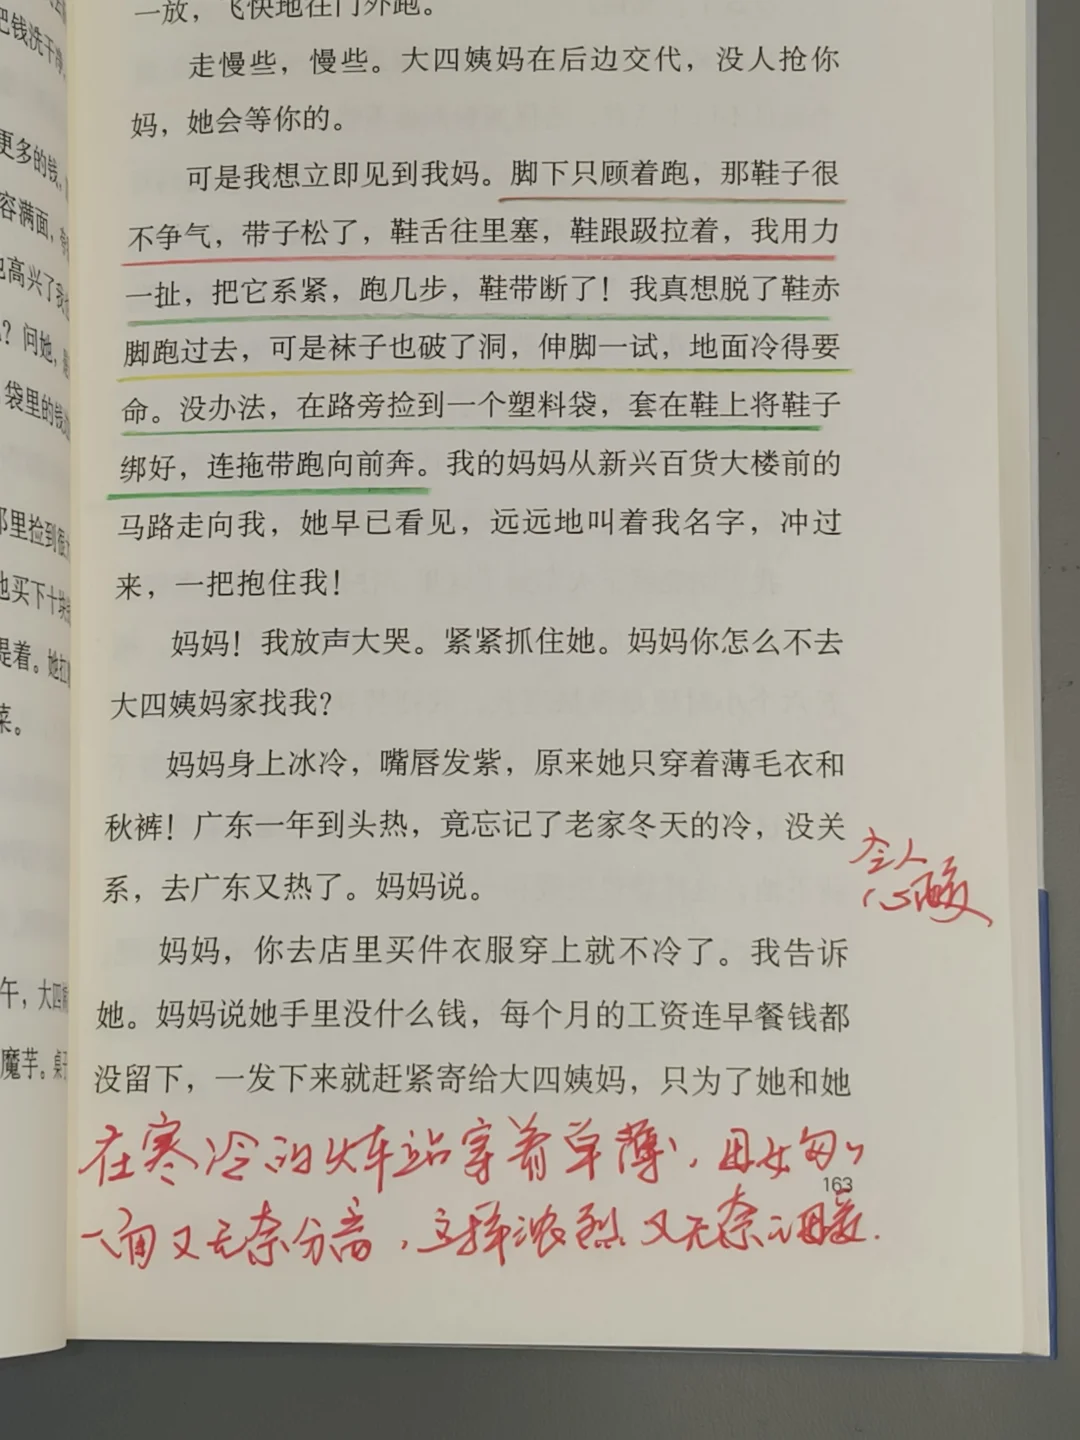 把钱洗干净
更多的钱,
容满面,
也高兴了我
?问她,
袋里的钱
那里捡到很
他买下十块
提着。她扛
菜。
午,大四姨
魔芋。桌子
一放,飞快地在门外跑。
走慢些,慢些。大四姨妈在后边交代,没人抢你
妈,她会等你的。
可是我想立即见到我妈。脚下只顾着跑,那鞋子很
不争气,带子松了,鞋舌往里塞,鞋跟趿拉着,我用力
一扯,把它系紧,跑几步,鞋带断了!我真想脱了鞋赤
脚跑过去,可是袜子也破了洞,伸脚一试,地面冷得要
命。没办法,在路旁捡到一个塑料袋,套在鞋上将鞋子
绑好,连拖带跑向前奔。我的妈妈从新兴百货大楼前的
马路走向我,她早已看见,远远地叫着我名字,冲过
来,一把抱住我!
妈妈!我放声大哭。紧紧抓住她。妈妈你怎么不去
大四姨妈家找我?
妈妈身上冰冷,嘴唇发紫,原来她只穿着薄毛衣和
秋裤!广东一年到头热,竟忘记了老家冬天的冷,没关
系,去广东又热了。妈妈说。
令人
心酸
妈妈,你去店里买件衣服穿上就不冷了。我告诉
她。妈妈说她手里没什么钱,每个月的工资连早餐钱都
没留下,一发下来就赶紧寄给大四姨妈,只为了她和她
在寒冷的火车站穿着单薄,母女匆匆
一面又无奈分离,这样浓烈又无奈的母爱.
163